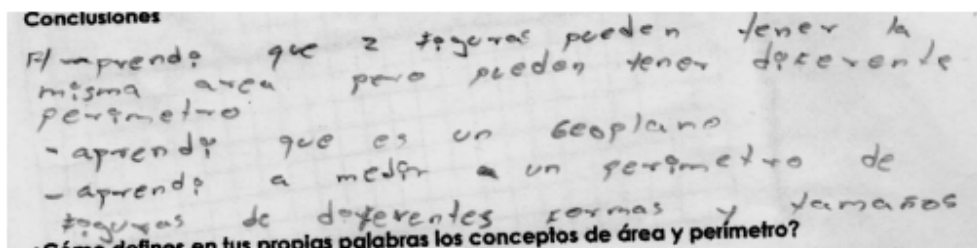 Conclusiones
aprendi que 2 figuras pueden tener la
misma area pero pueden tener diferente
perimetro
- aprendi que es un Geoplano
- aprendi a medir un perimetro de
figuras de deferentes formas y tamaños
¿Cómo defines en tus propias palabras los conceptos de área y perímetro?